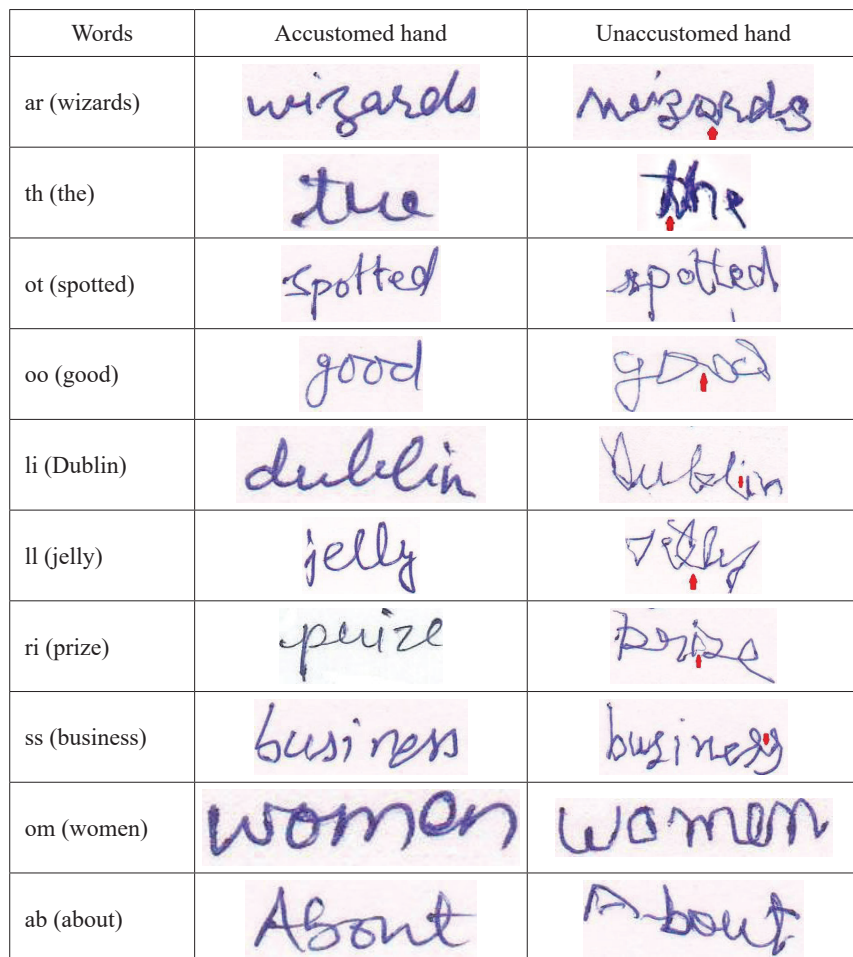 Words Accustomed hand Unaccustomed hand
ar (wizards) wizards wizards
th (the) the the
ot (spotted) spotted spotted
oo (good) good good
li (Dublin) dublin Dublin
ll (jelly) jelly jelly
ri (prize) prize prize
ss (business) business business
om (women) women women
ab (about) About About